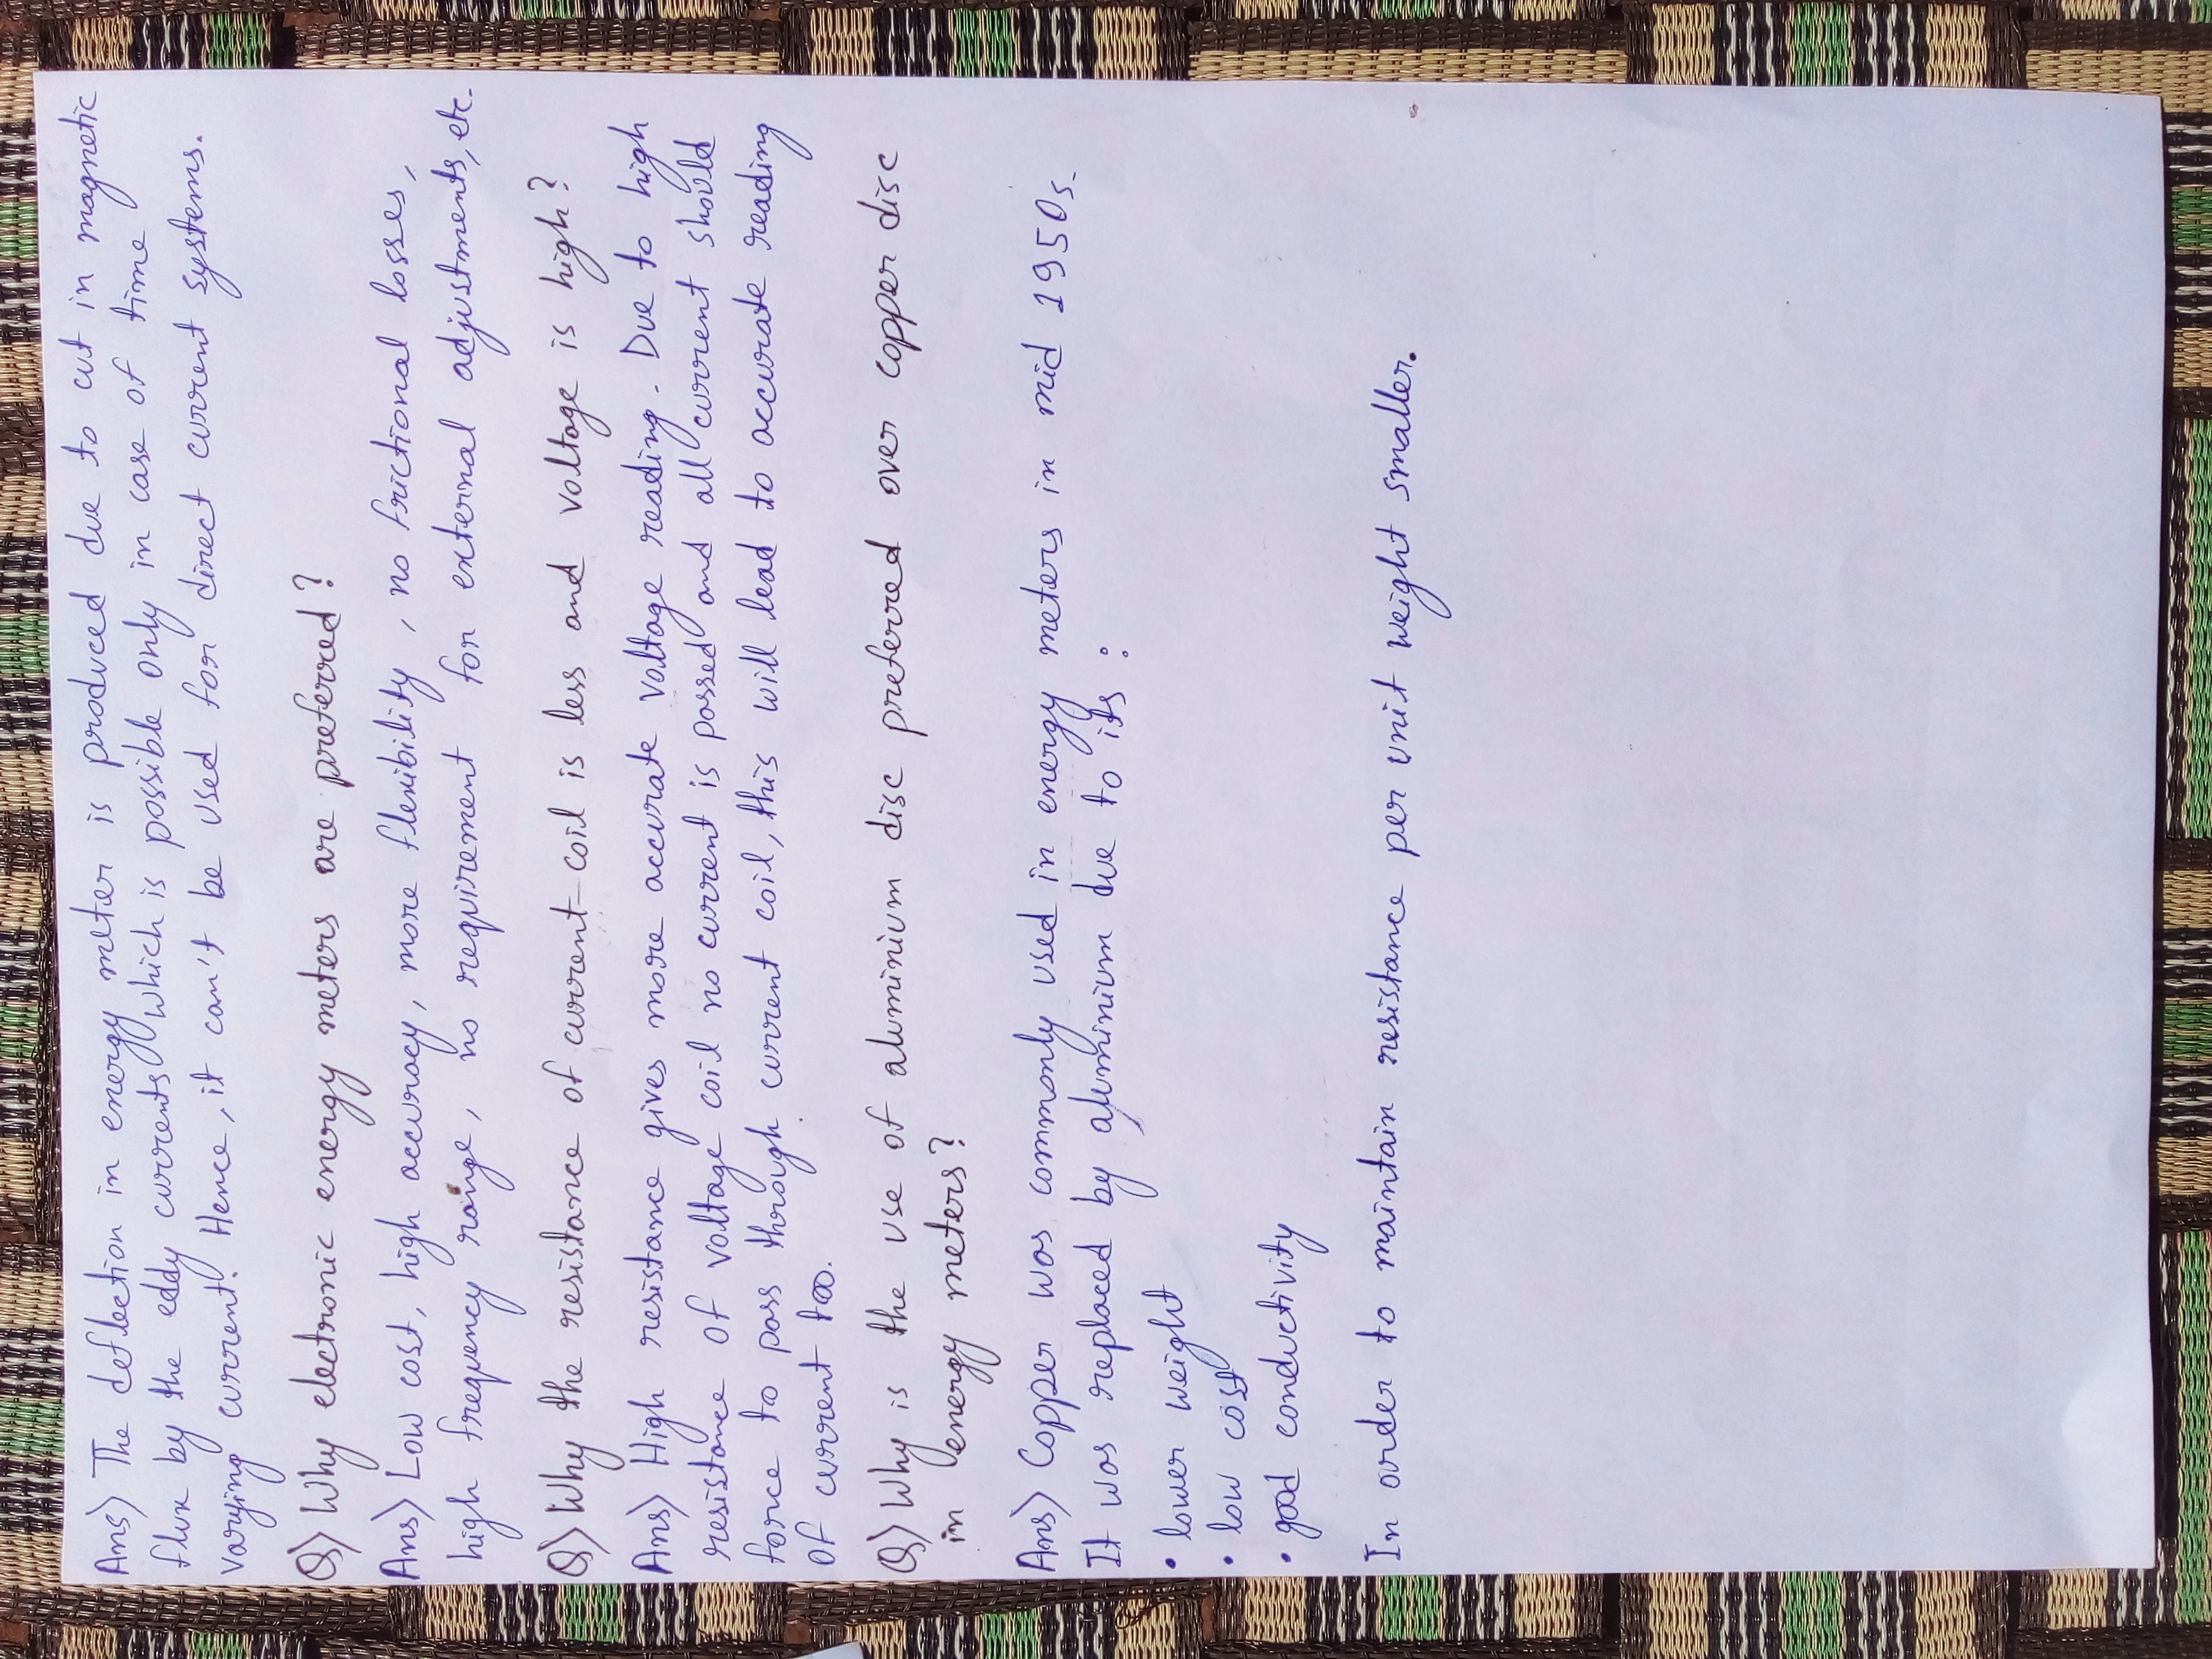 Ans) The deflection in energy meter is produced due to cut in magnetic
flux by the eddy currents which is possible only in case of time
varying current. Hence, it can't be used for direct current systems.
Q) Why electronic energy meters are preferred?
Ans) Low cost, high accuracy, more flexibility, no frictional losses,
high frequency range, no requirement for external adjustments, etc.
Q) Why the resistance of current coil is less and voltage is high?
Ans) High resistance gives more accurate voltage reading. Due to high
resistance of voltage coil no current is passed and all current should
force to pass through current coil, this will lead to accurate reading
of current too.
Q) Why is the use of aluminium disc preferred over copper disc
in energy meters?
Ans) Copper was commonly used in energy meters in mid 1950s.
It was replaced by aluminium due to its :
• lower weight
• low cost
• good conductivity
In order to maintain resistance per unit weight smaller.